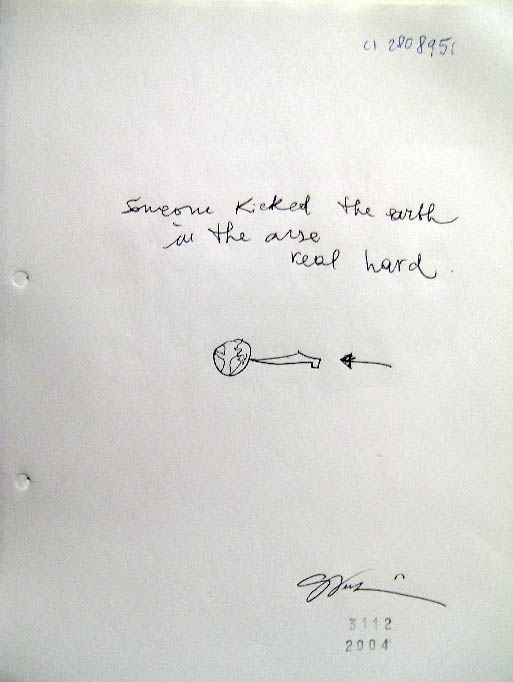 CI 2808951
Someone kicked the earth
in the arse
real hard.
3112
2004